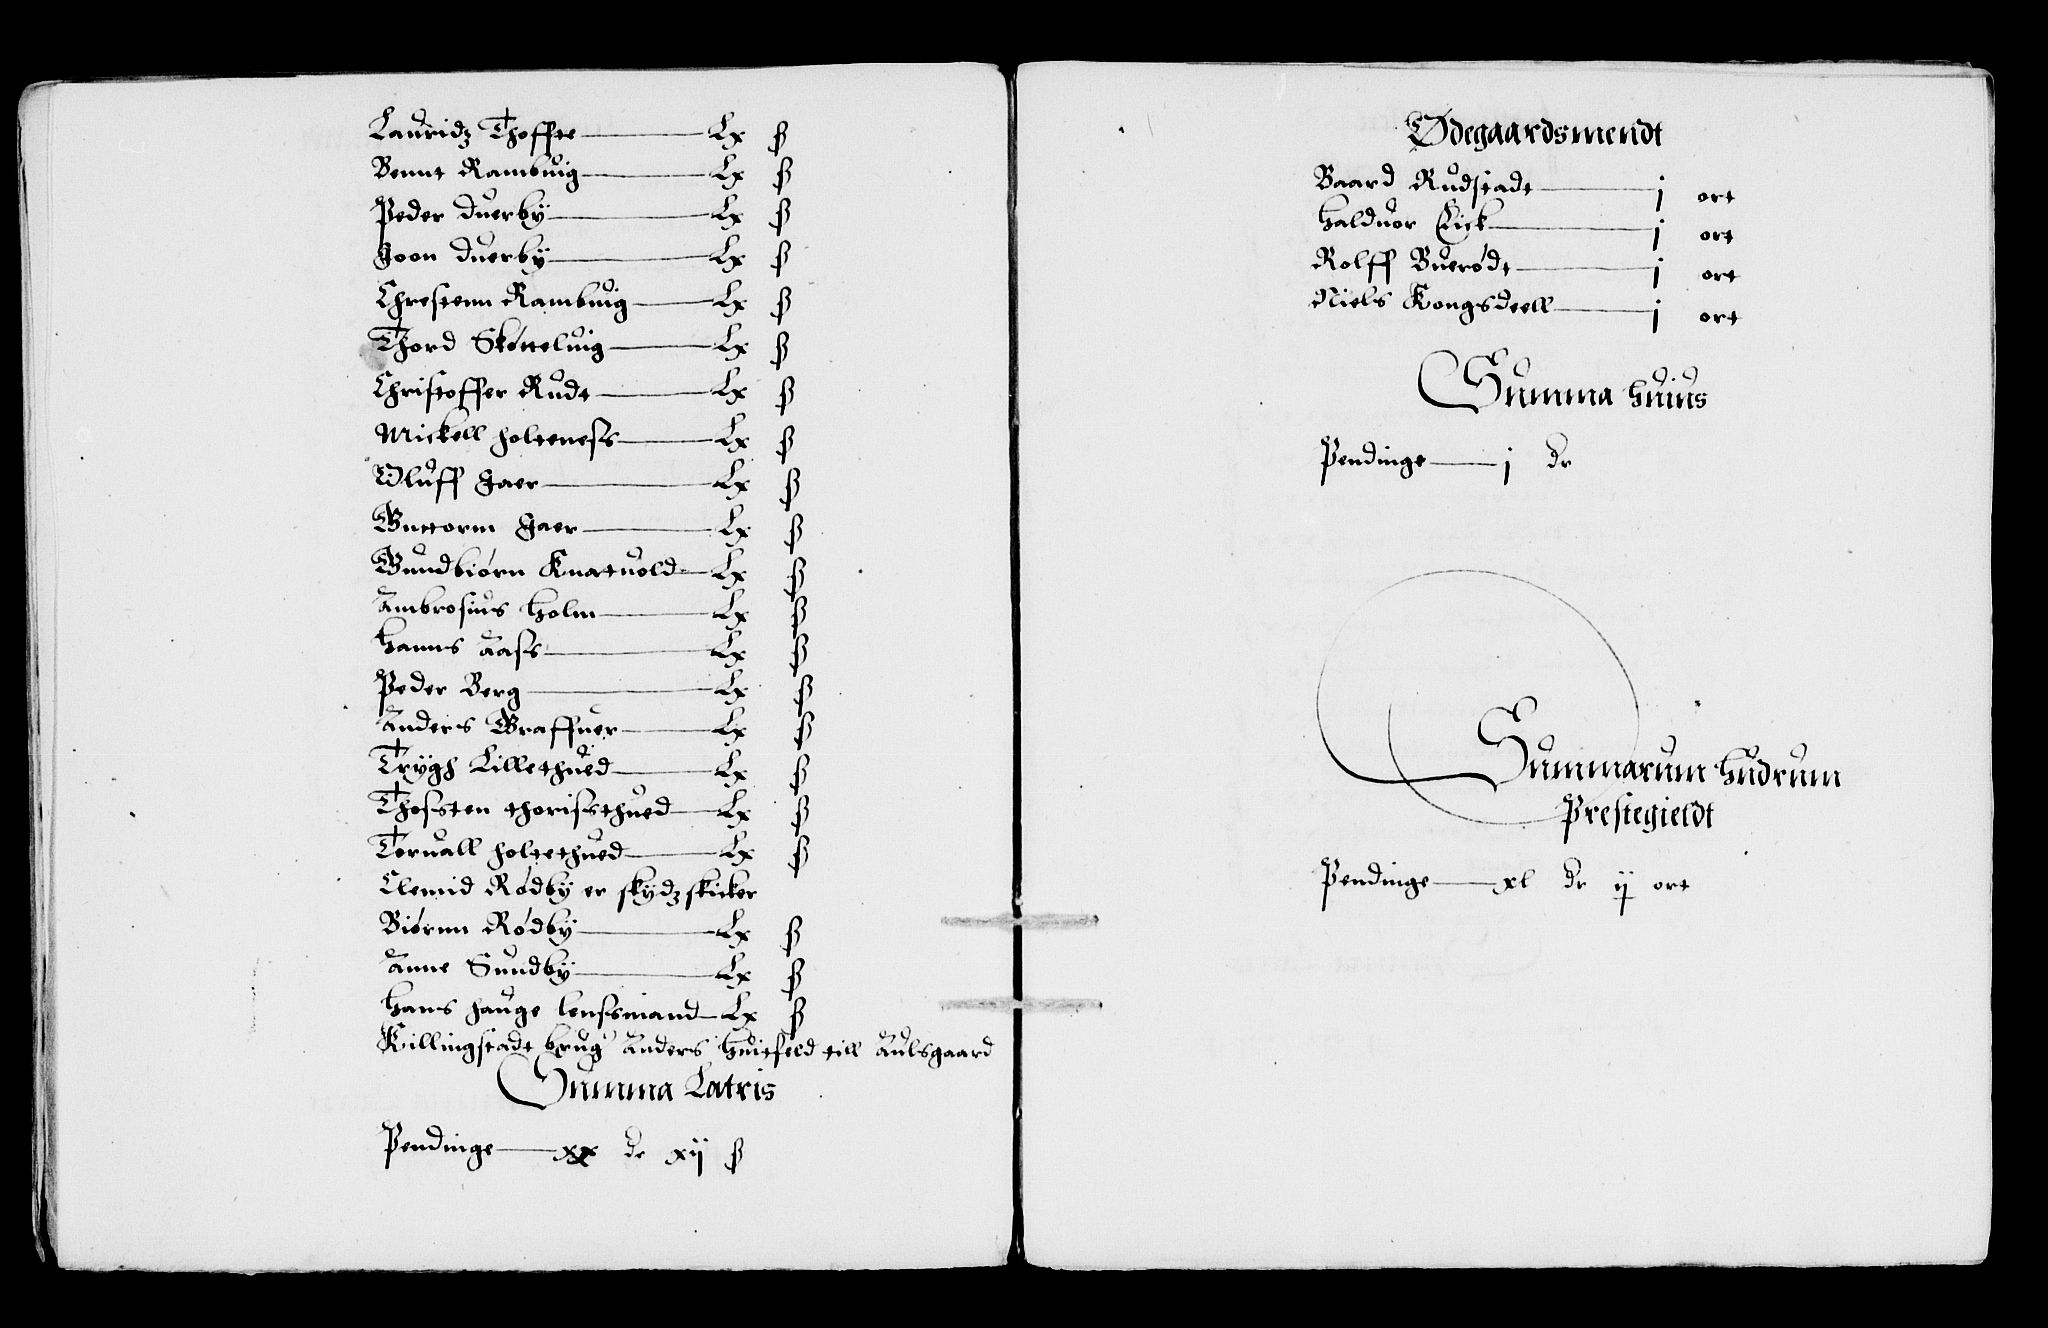 Lauridz Thoffte — Lx ß
Bennt Rambuig — Lx ß
Peder Duerbÿ — Lx ß
Joon Duerbÿ — Lx ß
Chrestenn Rambuig — Lx ß
Thord Skøtteluig — Lx ß
Christoffer Rudt — Lx ß
Mickell holteness — Lx ß
Oluff Jaer — Lx ß
Guttorm Jaer — Lx ß
Gundbiørn Knatuold — Lx ß
Ambrosius Holm — Lx ß
Hanns Aass — Lx ß
Peder Berg — Lx ß
Anders Graffner — Lx ß
Trÿgh Lillethued — Lx ß
Thossten thorissthued — Lx ß
Toruall holtethued — Lx ß
Clemid Rødbÿ er skÿdzskicker
Biørnn Rødbÿ — Lx ß
Anne Sundbÿ — Lx ß
Hans hauge lenssmand — Lx ß
Killingstadt brug Anders Huitfeld till Aulsgaard
Summa Latris
Pendinge — xx dr xij ß
Ødegaardsmendt
Baard Rudstadt — j ort
Halduor Eick — j ort
Rolff Buerødt — j ort
Niels Kongsdeell — j ort
Summa huius
Pendinge — j dr
Summarum Hudrum
Prestegieldt
Pendinge — xl dr ij ort